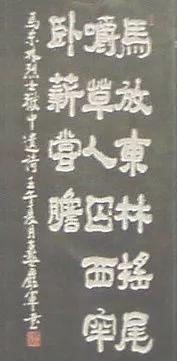 馬放東林搖尾
嚼草人囚西牢
卧薪嘗膽
馬東林烈士獄中遺詩壬午辰月嚴軍書